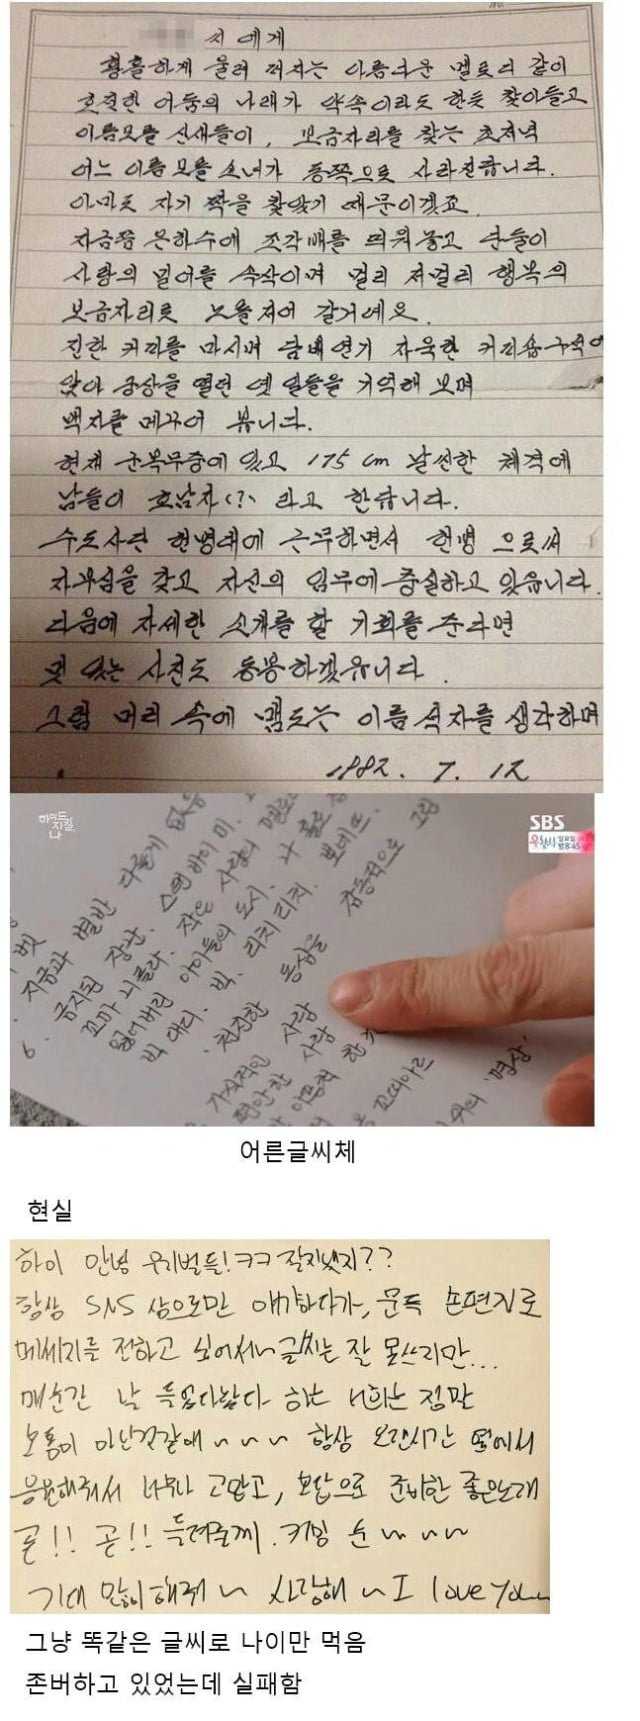 씨에게
황홀하게 울려 퍼지는 아름다운 멜로디 같이
호젓한 어둠의 나래가 약속이라도 한듯 찾아들고
이름모를 산새들이, 보금자리를 찾는 초저녁
어느 이름모를 소녀가 동쪽으로 사라진답니다.
아마도 자기 짝을 찾았기 때문이겠죠.
지금쯤 은하수에 조각배를 띄워놓고 단둘이
사랑의 밀어를 속삭이며 멀리 저멀리 행복의
보금자리로 노를저어 갈거예요.
진한 커피를 마시며 담배연기 자욱한 커피숍구석에
앉아 궁상을 떨던 옛 일들을 기억해 보며
백지를 메꾸어 봅니다.
현재 군복무중에 있고 175 cm 날씬한 체격에
남들이 호남자(?) 라고 한답니다.
수도사단 헌병대에 근무하면서 헌병 으로써
자부심을 갖고 자신의 임무에 충실하고 있읍니다.
다음에 자세한 소개를 할 기회를 준다면
멋 있는 사진도 동봉하겠읍니다.
그럼 머리 속에 맴도는 이름 석자를 생각하며
1982. 7. 12
하이드
지킬,
나
SBS
벳
지금과 별반 다를게 없음
6. 금지된 장난. 스탠 바이 미.
꼬마 니콜라. 작은 사랑의 멜로디
잃어버린 아이들의 도시. 나 홀로
빅 대디. 빅. 리치 리치. 뽀네뜨.
천진한 동심을 감동적으로 그림
가식적인 사람
편안한 사람
꼬띠아르
위의 '명상'
어른글씨체
현실
하이 안녕 우리벌들!ㅋㅋ 잘지냈지??
항상 SNS 상으로만 얘기하다가, 문득 손편지로
메세지를 전하고 싶어서~ 글씨는 잘 못쓰지만...
매순간 날 들었다놨다 하는 너희는 정말
보통이 아닌것같애 ~ ~ ~ 항상 오랜시간 뒤에서
응원해줘서 너무나 고맙고, 보답으로 준비한 좋은노래
곧!! 곧!! 들려줄께. 커밍 순 ~ ~ ~
기대 많이해줘 ~ 사랑해 ~ I love you~
그냥 똑같은 글씨로 나이만 먹음
존버하고 있었는데 실패함